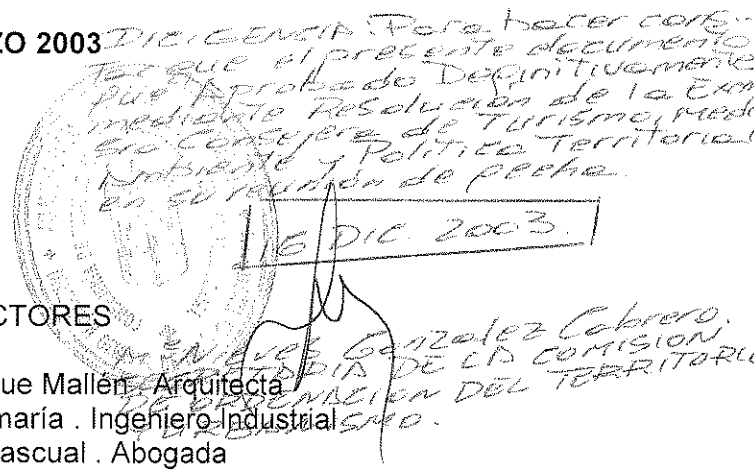 ZO 2003
DILIGENCIA. Para hacer cons-
tar que el presente documento
fue Aprobado Definitivamente
mediante Resolución de la Exma
Sra Consejera de Turismo, Medio
Ambiente y Política Territorial
en su reunión de fecha
16 DIC. 2003.
CTORES
Mª Nieves Gonzalez Cabrero.
SECRETARIA DE LA COMISION
ue Mallén . Arquitecta
DE ORDENACION DEL TERRITORIO
maría . Ingeniero Industrial
URBANISMO.
ascual . Abogada